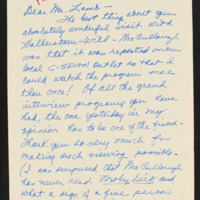 Dear Mr. Lamb —
The best thing about your
absolutely wonderful visit with
Halberstam - Will - McCullough
was that it was repeated on our
local C-SPAN outlet so that I
could watch the program more
than once! Of all the grand
interview programs you have
had, the one yesterday in my
opinion has to be one of the finest.
Thank you so very much for
making such viewing possible.
I was surprised that McCullough
has never read Moby Dick and
what a sign of a fine person